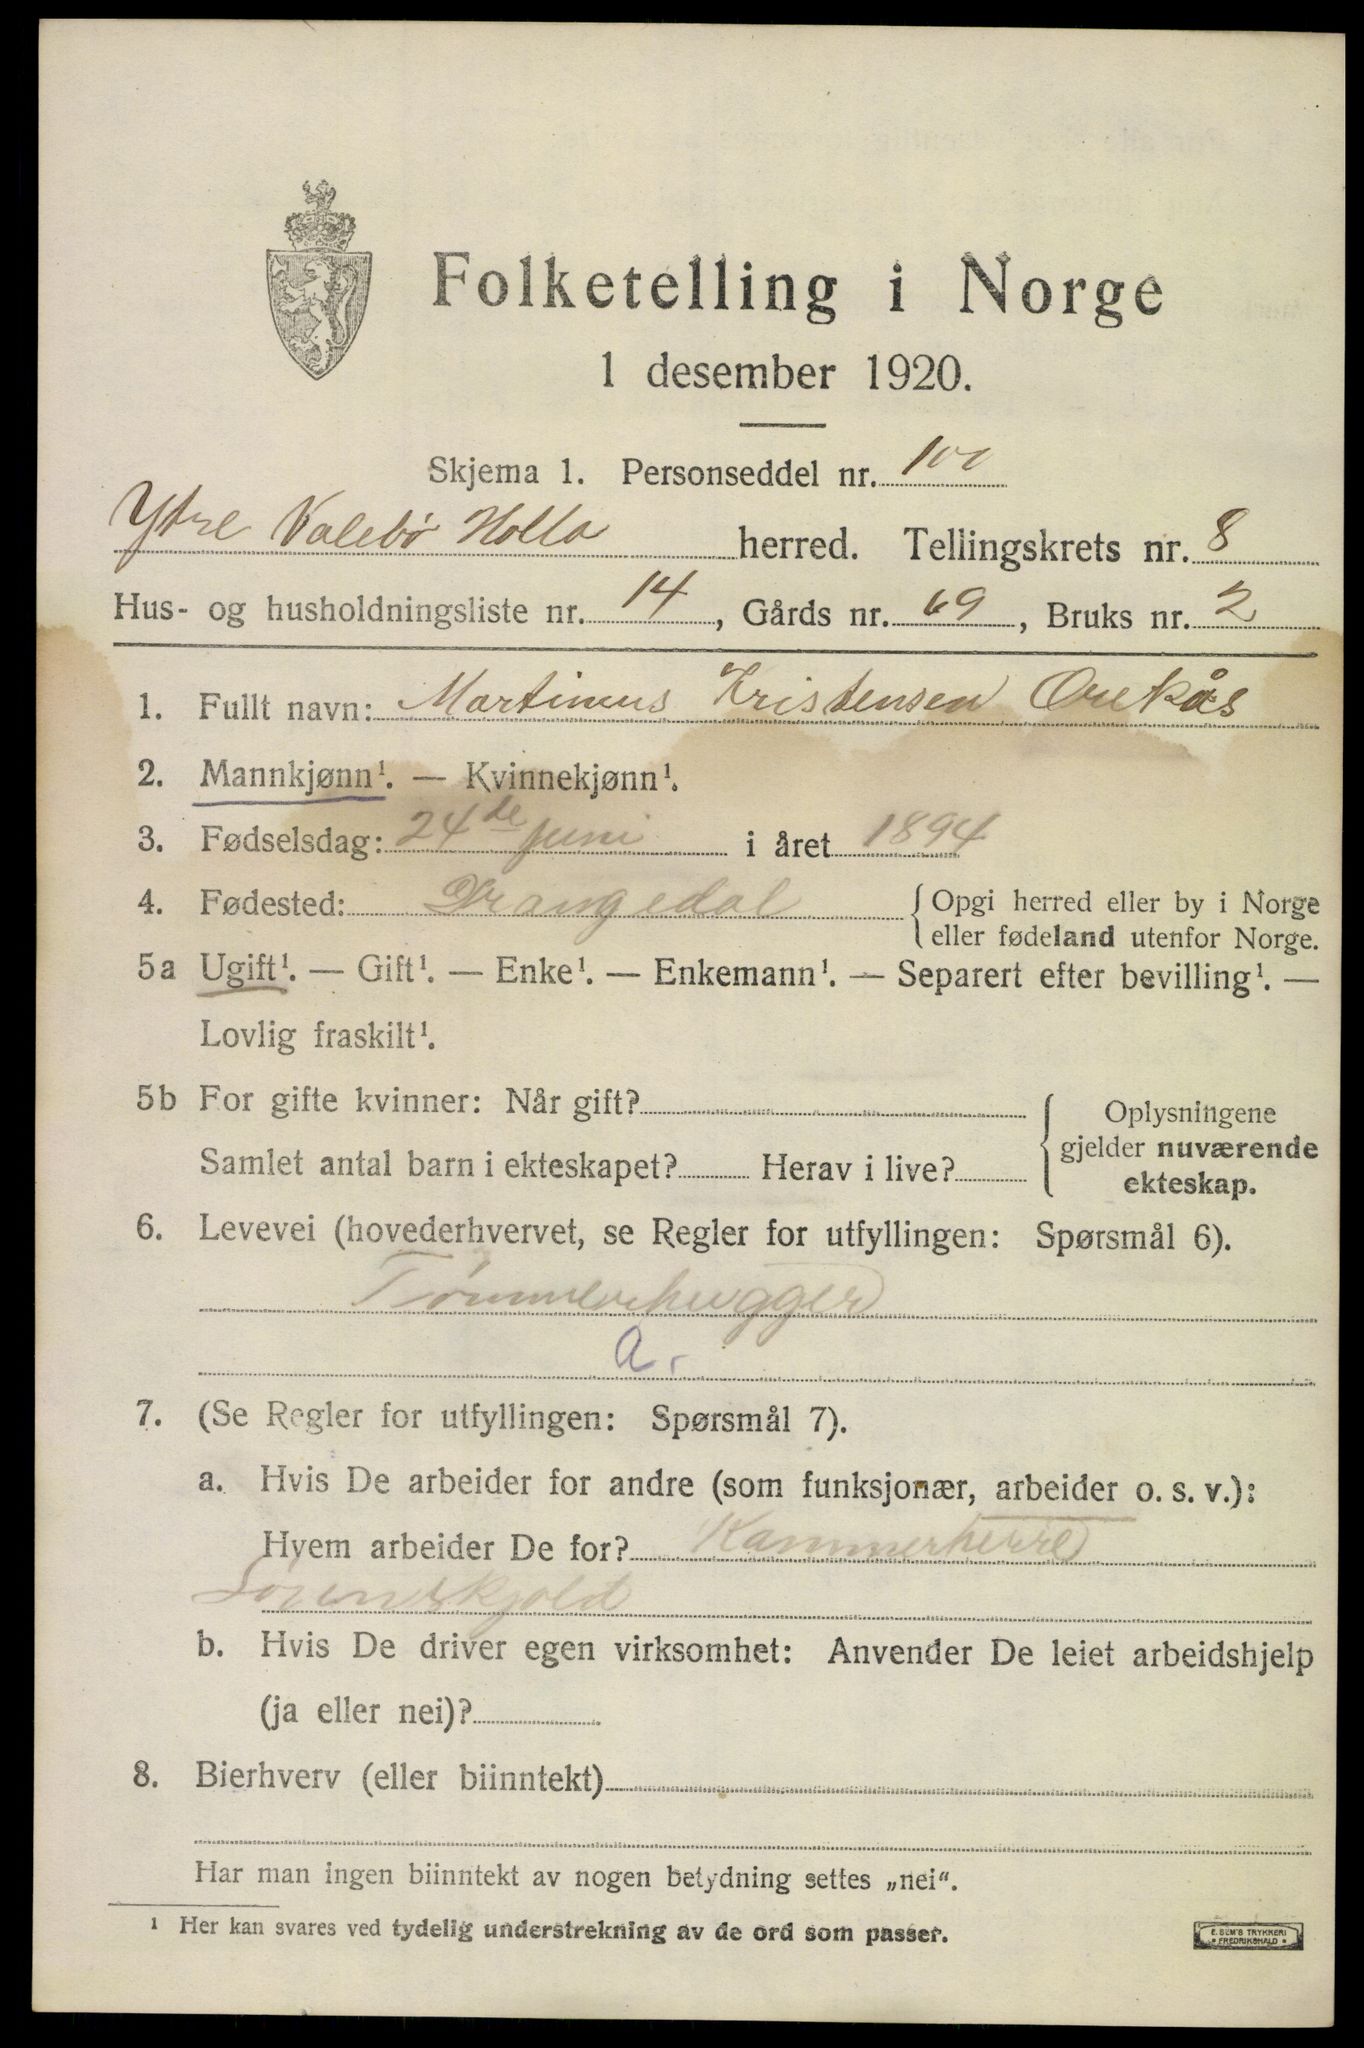 Folketelling i Norge
1 desember 1920.
Skjema 1. Personseddel nr. 100
Ytre Valebø Holla herred. Tellingskrets nr. 8
Hus- og husholdningsliste nr. 14, Gårds nr. 69, Bruks nr. 2
1. Fullt navn: Martinus Kristensen
2. Mannkjønn¹. — Kvinnekjønn¹.
3. Fødselsdag: 24de juni i året 1894
4. Fødested: Drangedal { Opgi herred eller by i Norge
eller fødeland utenfor Norge.
5a Ugift¹. — Gift¹. — Enke¹. — Enkemann¹. — Separert efter bevilling¹. —
Lovlig fraskilt¹.
5b For gifte kvinner: Når gift?
Samlet antal barn i ekteskapet? Herav i live?
{ Oplysningene
gjelder nuværende
ekteskap.
6. Levevei (hovederhvervet, se Regler for utfyllingen: Spørsmål 6).
Tømmerhugger
a.
7. (Se Regler for utfyllingen: Spørsmål 7).
a. Hvis De arbeider for andre (som funksjonær, arbeider o. s. v.):
Hvem arbeider De for? Kammerherre
Løvenskjold
b. Hvis De driver egen virksomhet: Anvender De leiet arbeidshjelp
(ja eller nei)?
8. Bierhverv (eller biinntekt)
Har man ingen biinntekt av nogen betydning settes „nei“.
¹ Her kan svares ved tydelig understrekning av de ord som passer.
E. SEM'S TRYKKERI
• FREDRIKSHALD •